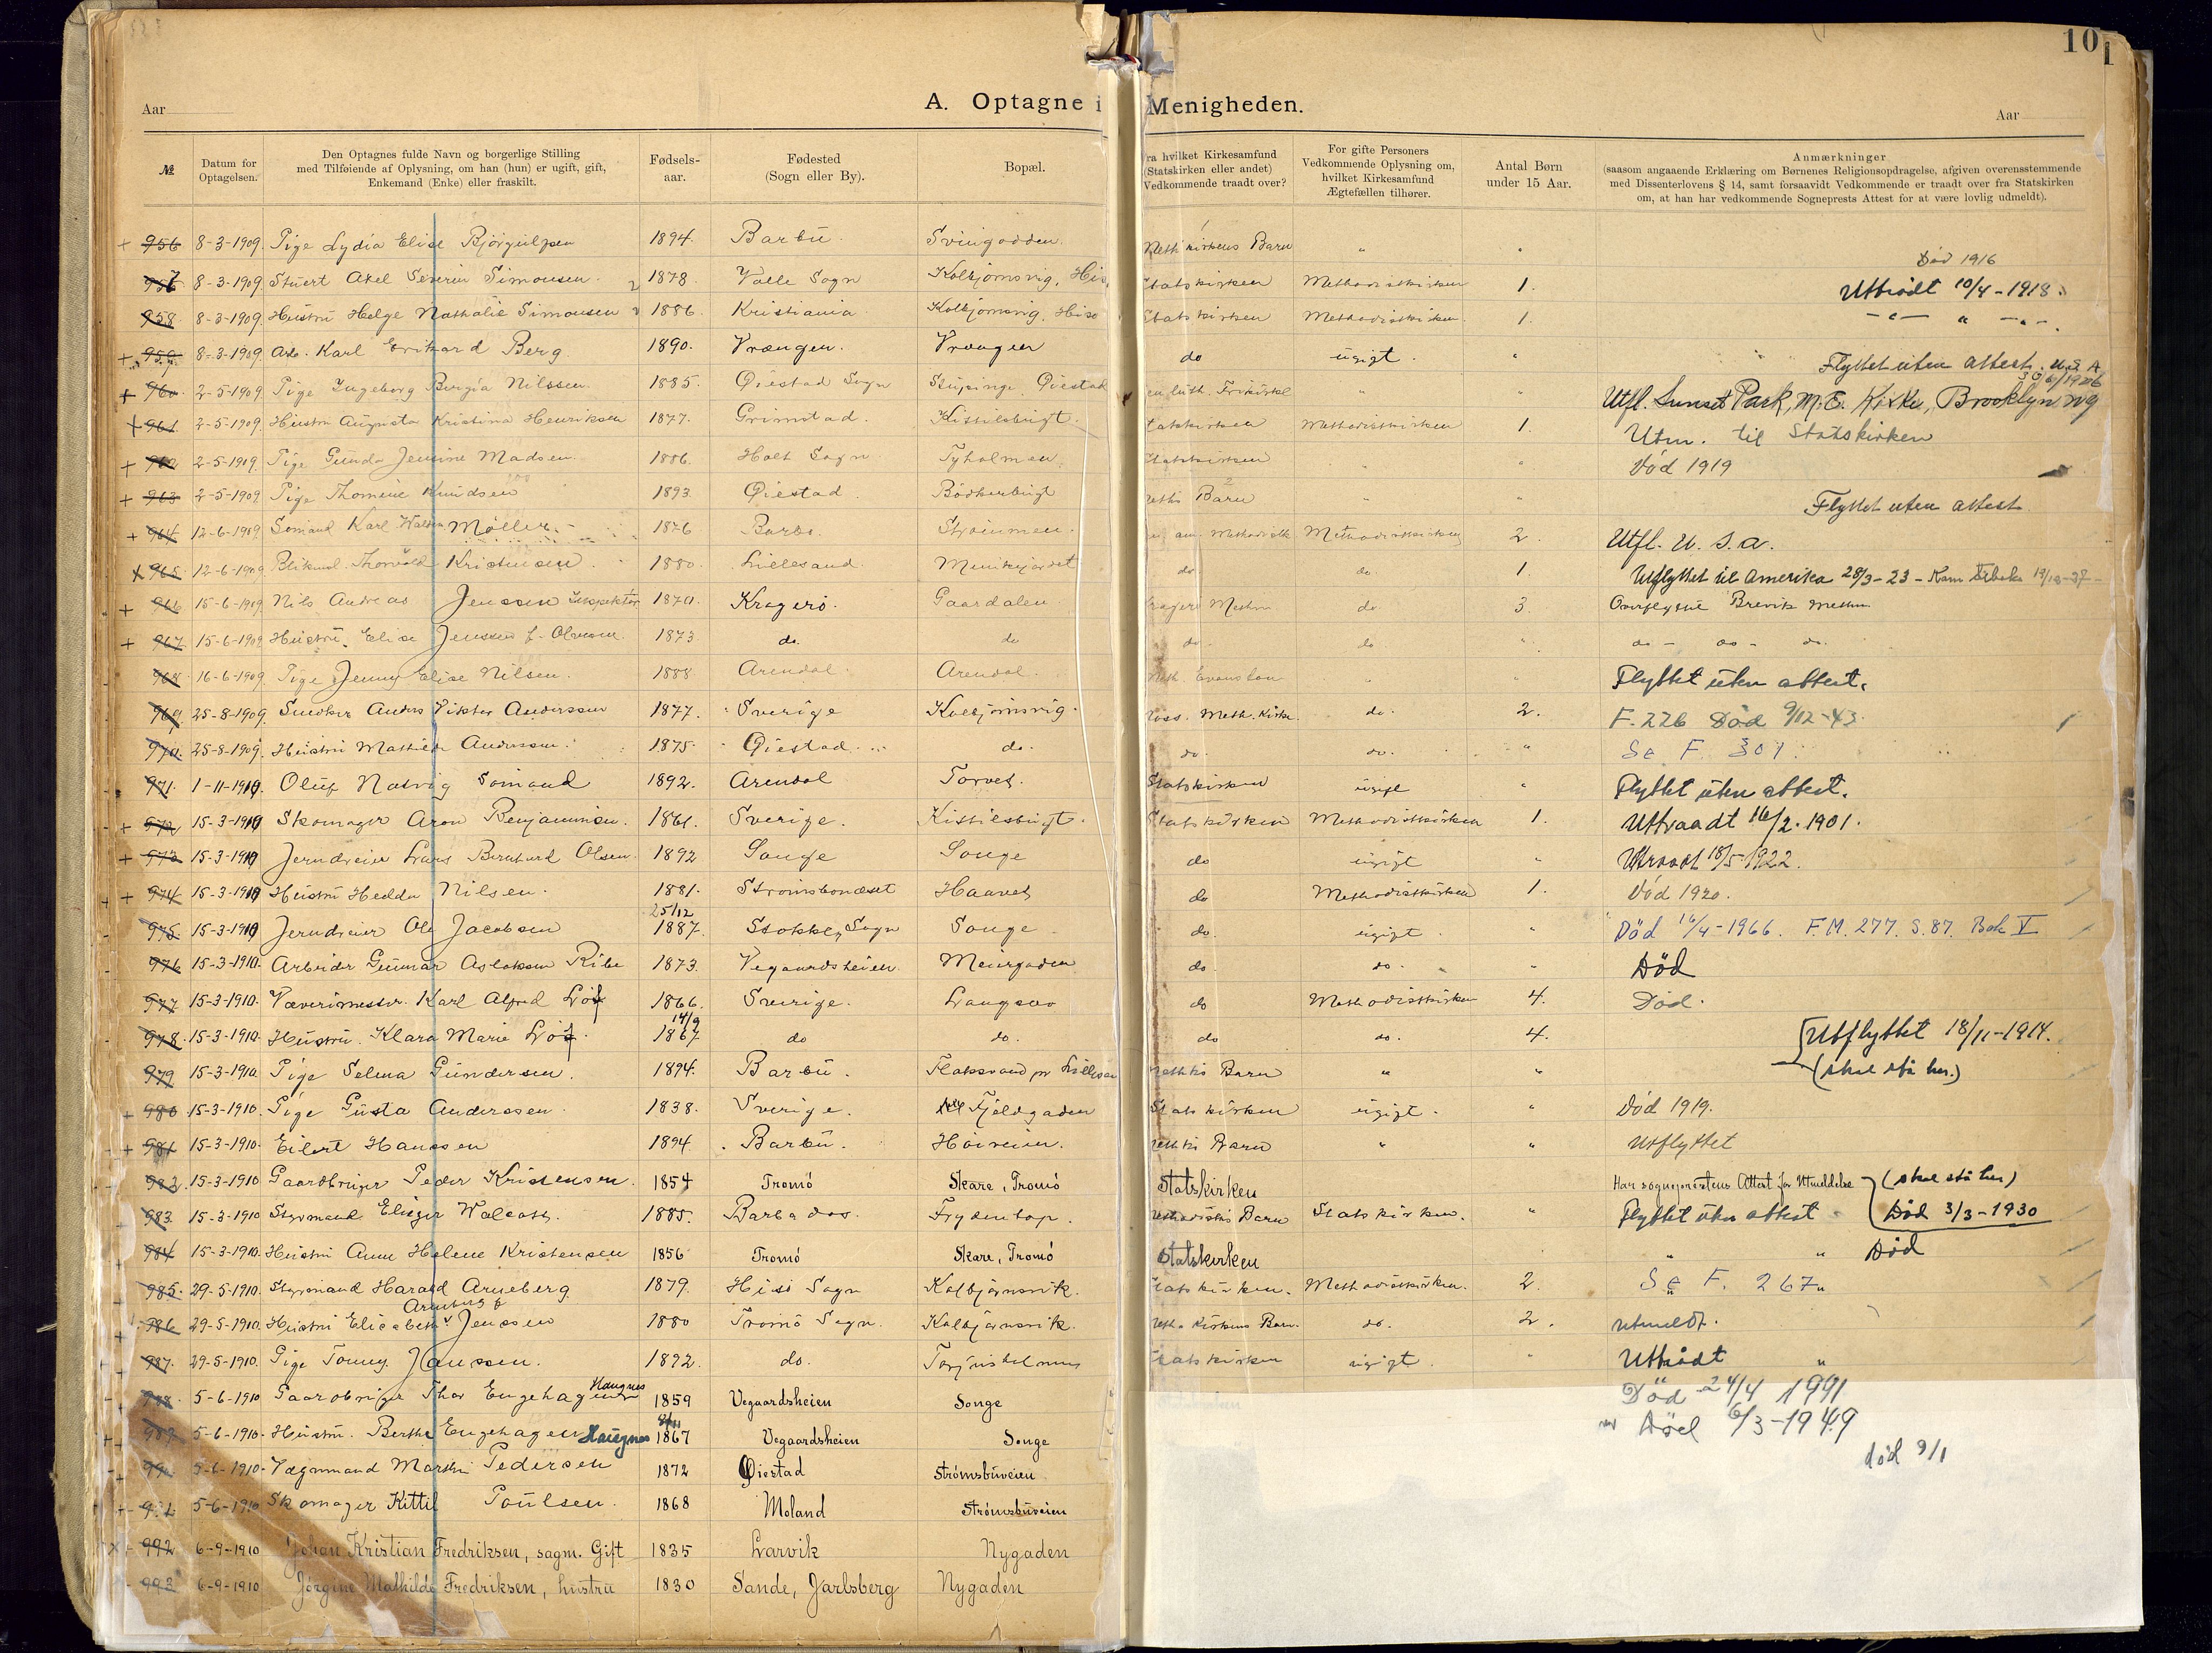 101
Aar
A. Optagne i Menigheden.
Aar
№
Datum for Optagelsen.
Den Optagnes fulde Navn og borgerlige Stilling med Tilføiende af Oplysning, om han (hun) er ugift, gift, Enkemand (Enke) eller fraskilt.
Fødsels-aar.
Fødested (Sogn eller By).
Bopæl.
ra hvilket Kirkesamfund (Statskirken eller andet) Vedkommende traadt over?
For gifte Personers Vedkommende Oplysning om, hvilket Kirkesamfund Ægtefællen tilhører.
Antal Børn under 15 Aar.
Anmærkninger (saasom angaaende Erklæring om Børnenes Religionsopdragelse, afgiven overensstemmende med Dissenterlovens § 14, samt forsaavidt Vedkommende er traadt over fra Statskirken om, at han har vedkommende Sogneprests Attest for at være lovlig udmeldt).
+ 956 8-3-1909. Pige Lydia Elise 1894. Barbu. Svinodden. Meth kirkens Barn " "
957 8-3-1909 Stuert Axel Severin Simonsen. 1878. Valle Sogn Kolbjørnsvig, His. Statskirken Methodistkirken 1. Død 1916 Uttrådt 10/4-1918.
958. 8-3-1909. Hustru Helga Nathalie Simonsen 1886. Kristiania. Kolbjørnsvig, Hisø Statskirken Methodistkirken. 1. -"- " -"-.
+ 959. 8-3-1909. Arb. Karl Erikard Berg. 1890. Vrængen. Vrængen do ugift. " Flyttet uten attest. U.S.A
+ 960. 2-5-1909. Pige Ingeborg Bergia Nilssen. 1885. Øiestad Sogn Øiestad luth. Frikirke " " 1926 Utfl. Sunset Park, M.E. Kirke, Brooklyn Ng
+ 961. 2-5-1909. Hustru Augusta Kristina Henriksen 1877. Grimstad. Kittilsbugt. tatskirken Methodistkirken 1. Utm. til Statskirken
+ 962 2-5-1909. Pige Gunda Jensine Madsen. 1886. Holt Sogn Tyholmen. Statskirken " " Død 1919
+ 963 2-5-1909 Pige Thomine Knudsen 1893. Øiestad. Bödkerbugt meths Barn " " Flyttet uten attest
+ 964 12-6-1909 Sömand Karl Møller. 1876 Barbo. Strømmen. am. Methodistk Methodistkirken 2. Utfl. U.S.A.
+ 965 12-6-1909 Bliksml. Thorvald Kristensen. 1880. Lillesand. do do. 1. Utflyttet til Amerika 28/3-23 - Kom tilbake
+ 966 15-6-1909 Nils Andreas Jenssen Inspektør 1870. Kragerø. Gaardalen. Kragerö Meth do. 3. Overflyttet Brevik Meth.
+ 967. 15-6-1909 Hustru. Elise Jenssen f. Olsen. 1873. do. do do. do. " do - do - do.
968. 16-6-1909 Pige Jenny Elise Nilsen. 1888 Arendal. Arendal. Meth. Evanston " " Flyttet uten attest.
969. 25-8-1909. Snedker Anders Viktor Anderssen 1877. Sverige Kolbjörnsvig. Meth. Kirke. do. 2. F. 226 Död 9/12-43.
970. 25-8-1909. Hustru Mathilde Anderssen. 1875. Øiestad. do. do. do. " Se F. 307.
971. 1-11-1910. Oluf Natvig Sømand 1892. Arendal Torvet. Statskirken ugift " Flyttet uten attest.
+ 972 15-3-1910 Skomager Aron Benjaminsen. 1861. Sverige. Kittilsbugt. Statskirken Methodistkirken 1. Uttraadt 16/2. 1901.
+ 973 15-3-1910 Jerndreier Lars Bernhard Olsen. 1892 Songe Songe do ugift " Uttraadt 18/5-1922.
+ 974 15-3-1910 Hustru Hedda Nilsen. 1881. Strømsbonæset Haavet do Methodistkirken 1. Død 1920.
975. 15-3-1910 Jerndreier Ole Jacobsen 25/12 1887. Stokken Sogn Songe do. ugift. " Død 16/4-1966. F.M. 277. S. 87. Bok V
976 15-3-1910. Arbeider Gunnar Aslaksen Ribe 1873. Vegaardsheien. Meiergaden do. do. " Död
977 15-3-1910. Væverimester. Karl Alfred Löf 1866. Sverige. Langsæv do Methodistkirken 4. Död.
978. 15-3-1910. Hustru. Klara Marie Löf. 14/9 1867 do do. do do. 4. Utflyttet 18/11-1914.
979 15-3-1910. Pige Selma Gundersen. 1894. Barbu. Flaksvand pr Lillesan methks Barn " " (skal stå her.)
+ 980 15-3-1910. Pige Gusta Anderssen. 1838. Sverige. Fjeldgaden Statskirken ugift. " Död 1919.
+ 981 15-3-1910. Eilert Hanssen 1894. Barbu. Höiveien. methks Barn " " Utflyttet
982. 15-3-1910 Gaardbruger Peder Kristensen. 1854 Tromö Skare, Tromö Statskirken Har sogneprestens Attest for Utmeldelse (skal stå her)
983. 15-3-1910 Styrmand Eliezer Walcott. 1885. Barbados. Frydentop. Methodistks Barn Statskirken. " Flyttet uten attest Död 3/3-1930
984 15-3-1910. Hustru Anne Helene Kristensen 1856 Tromö Skare, Tromö Statskirken " " Död
985. 29-5-1910. Styrmand Harald Arneberg 1879. Hisö Sogn Kolbjørnsvik. Statskirken. Methodistkirken. 2. Se F. 267
Arneberg f
986 29-5-1910. Hustru Elisabeth Jenssen 1880 Tromö Sogn. Kolbjørnsvik. Meth. Kirkens Barn. do. 2. Utmeldt.
987. 29-5-1910. Pige Tomny Hanssen. 1892. do. Statskirken ugift. " Uttrådt "
988. 5-6-1910 Gaardbruger Thor Engehagen Haugnes 1859 Vegaardsheien Songe Död 24/4 1991
989. 5-6-1910. Hustru. Berthe Engehagen Haugnes 8/11 1867 Vegaardsheien Songe Död 6/3-1949
990 5-6-1910. Vognmand Martin Pedersen 1872 Øiestad Strømsbuveien død 9/1
991 5-6-1910 Skomager Kittil Poulsen. 1868 Moland Strømsbuveien
992 6-9-1910 Johan Kristian Fredriksen, sagm. Gift 1835 Larvik Nygaden
993 6-9-1910 Jørgine Mathilde Fredriksen, hustru 1830 Sande, Jarlsberg Nygaden